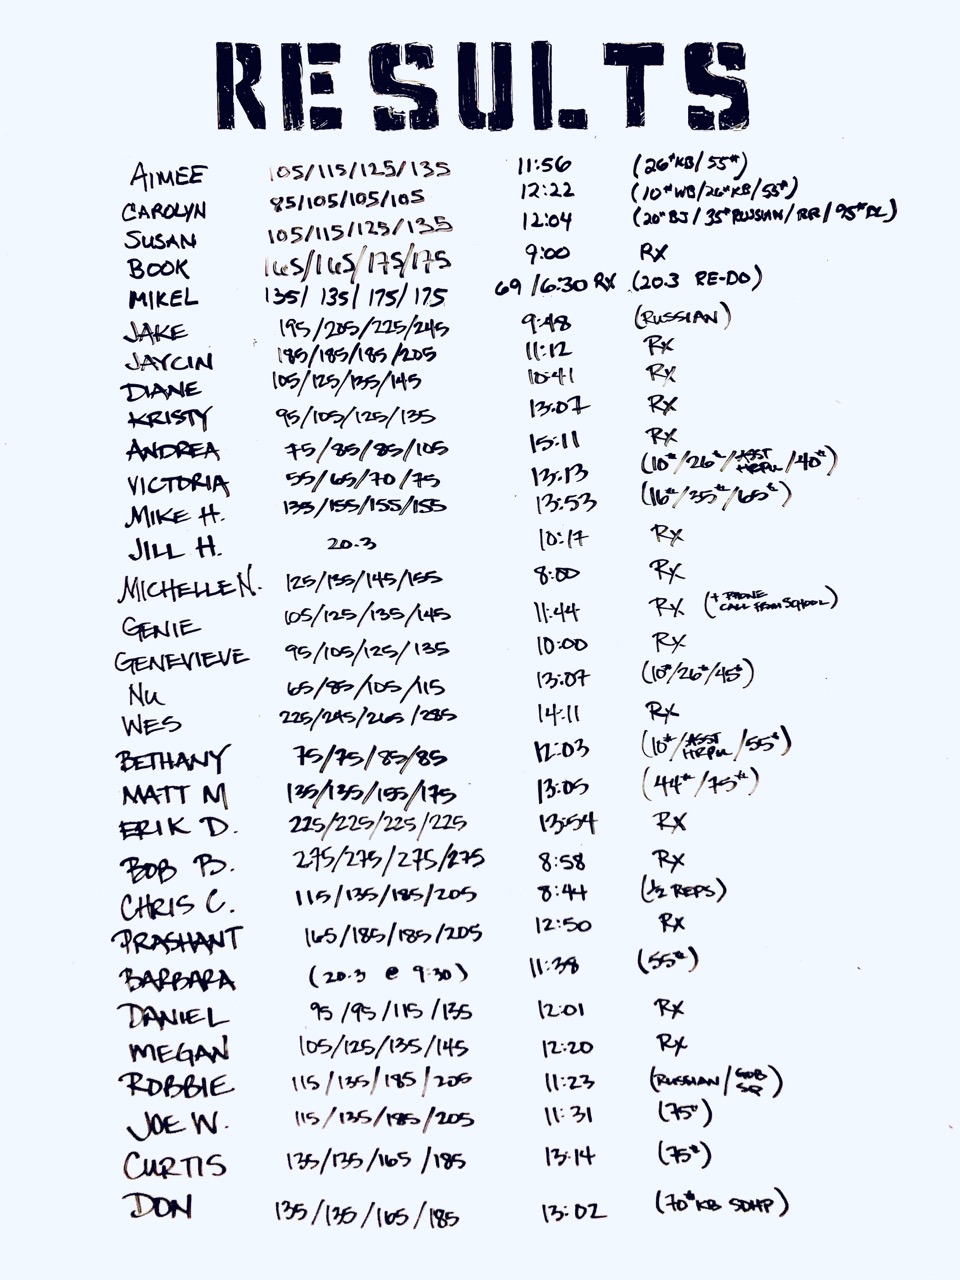 RESULTS
AIMEE 105/115/125/135 11:56 (26#KB/55#)
CAROLYN 85/105/105/105 12:22 (10#WB/26#KB/55#)
SUSAN 105/115/125/135 12:04 (20"BJ/35#RUSSIAN/RR/95#DL)
BOOK 165/165/175/175 9:00 RX
MIKEL 135/135/175/175 69/6:30 RX (20.3 RE-DO)
JAKE 195/205/225/245 9:48 (RUSSIAN)
JAYCIN 185/185/185/205 11:12 RX
DIANE 105/125/135/145 10:41 RX
KRISTY 95/105/125/135 13:07 RX
ANDREA 75/85/85/105 15:11 RX
VICTORIA 55/65/70/75 13:13 (10#/26#/ASST HRPU/40#)
MIKE H. 135/155/155/155 13:53 (16#/35#/65#)
JILL H. 20.3 10:17 RX
MICHELLE N. 125/135/145/155 8:00 RX
GENIE 105/125/135/145 11:44 RX (+ PHONE CALL FROM SCHOOL)
GENEVIEVE 95/105/125/135 10:00 RX
NU 65/85/105/115 13:07 (10#/26#/45#)
WES 225/245/265/285 14:11 RX
BETHANY 75/75/85/85 12:03 (10#/ASST HRPU/55#)
MATT M 135/135/155/175 13:05 (44#/75#)
ERIK D. 225/225/225/225 13:54 RX
BOB B. 275/275/275/275 8:58 RX
CHRIS C. 115/135/185/205 8:44 (1/2 REPS)
PRASHANT 165/185/185/205 12:50 RX
BARBARA (20.3 @ 9:30) 11:38 (55#)
DANIEL 95/95/115/135 12:01 RX
MEGAN 105/125/135/145 12:20 RX
ROBBIE 115/135/185/205 11:23 (RUSSIAN/ SQ)
JOE W. 115/135/185/205 11:31 (75#)
CURTIS 135/135/165/185 13:14 (75#)
DON 135/135/165/185 13:02 (70#KB SDHP)